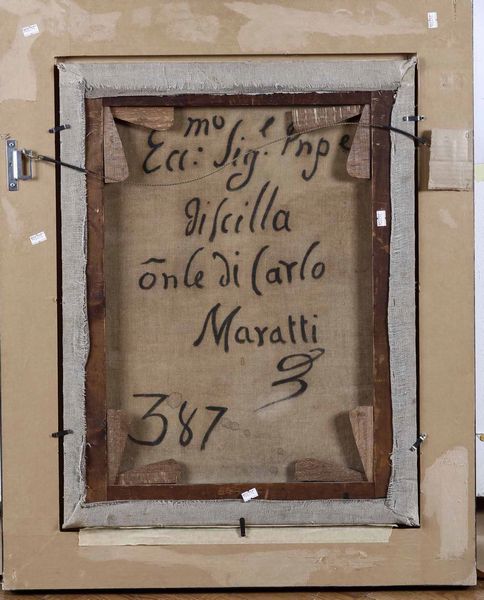 Ecc:mo Sig.e Inpe
Discilla
ōnle di Carlo
Maratti
387